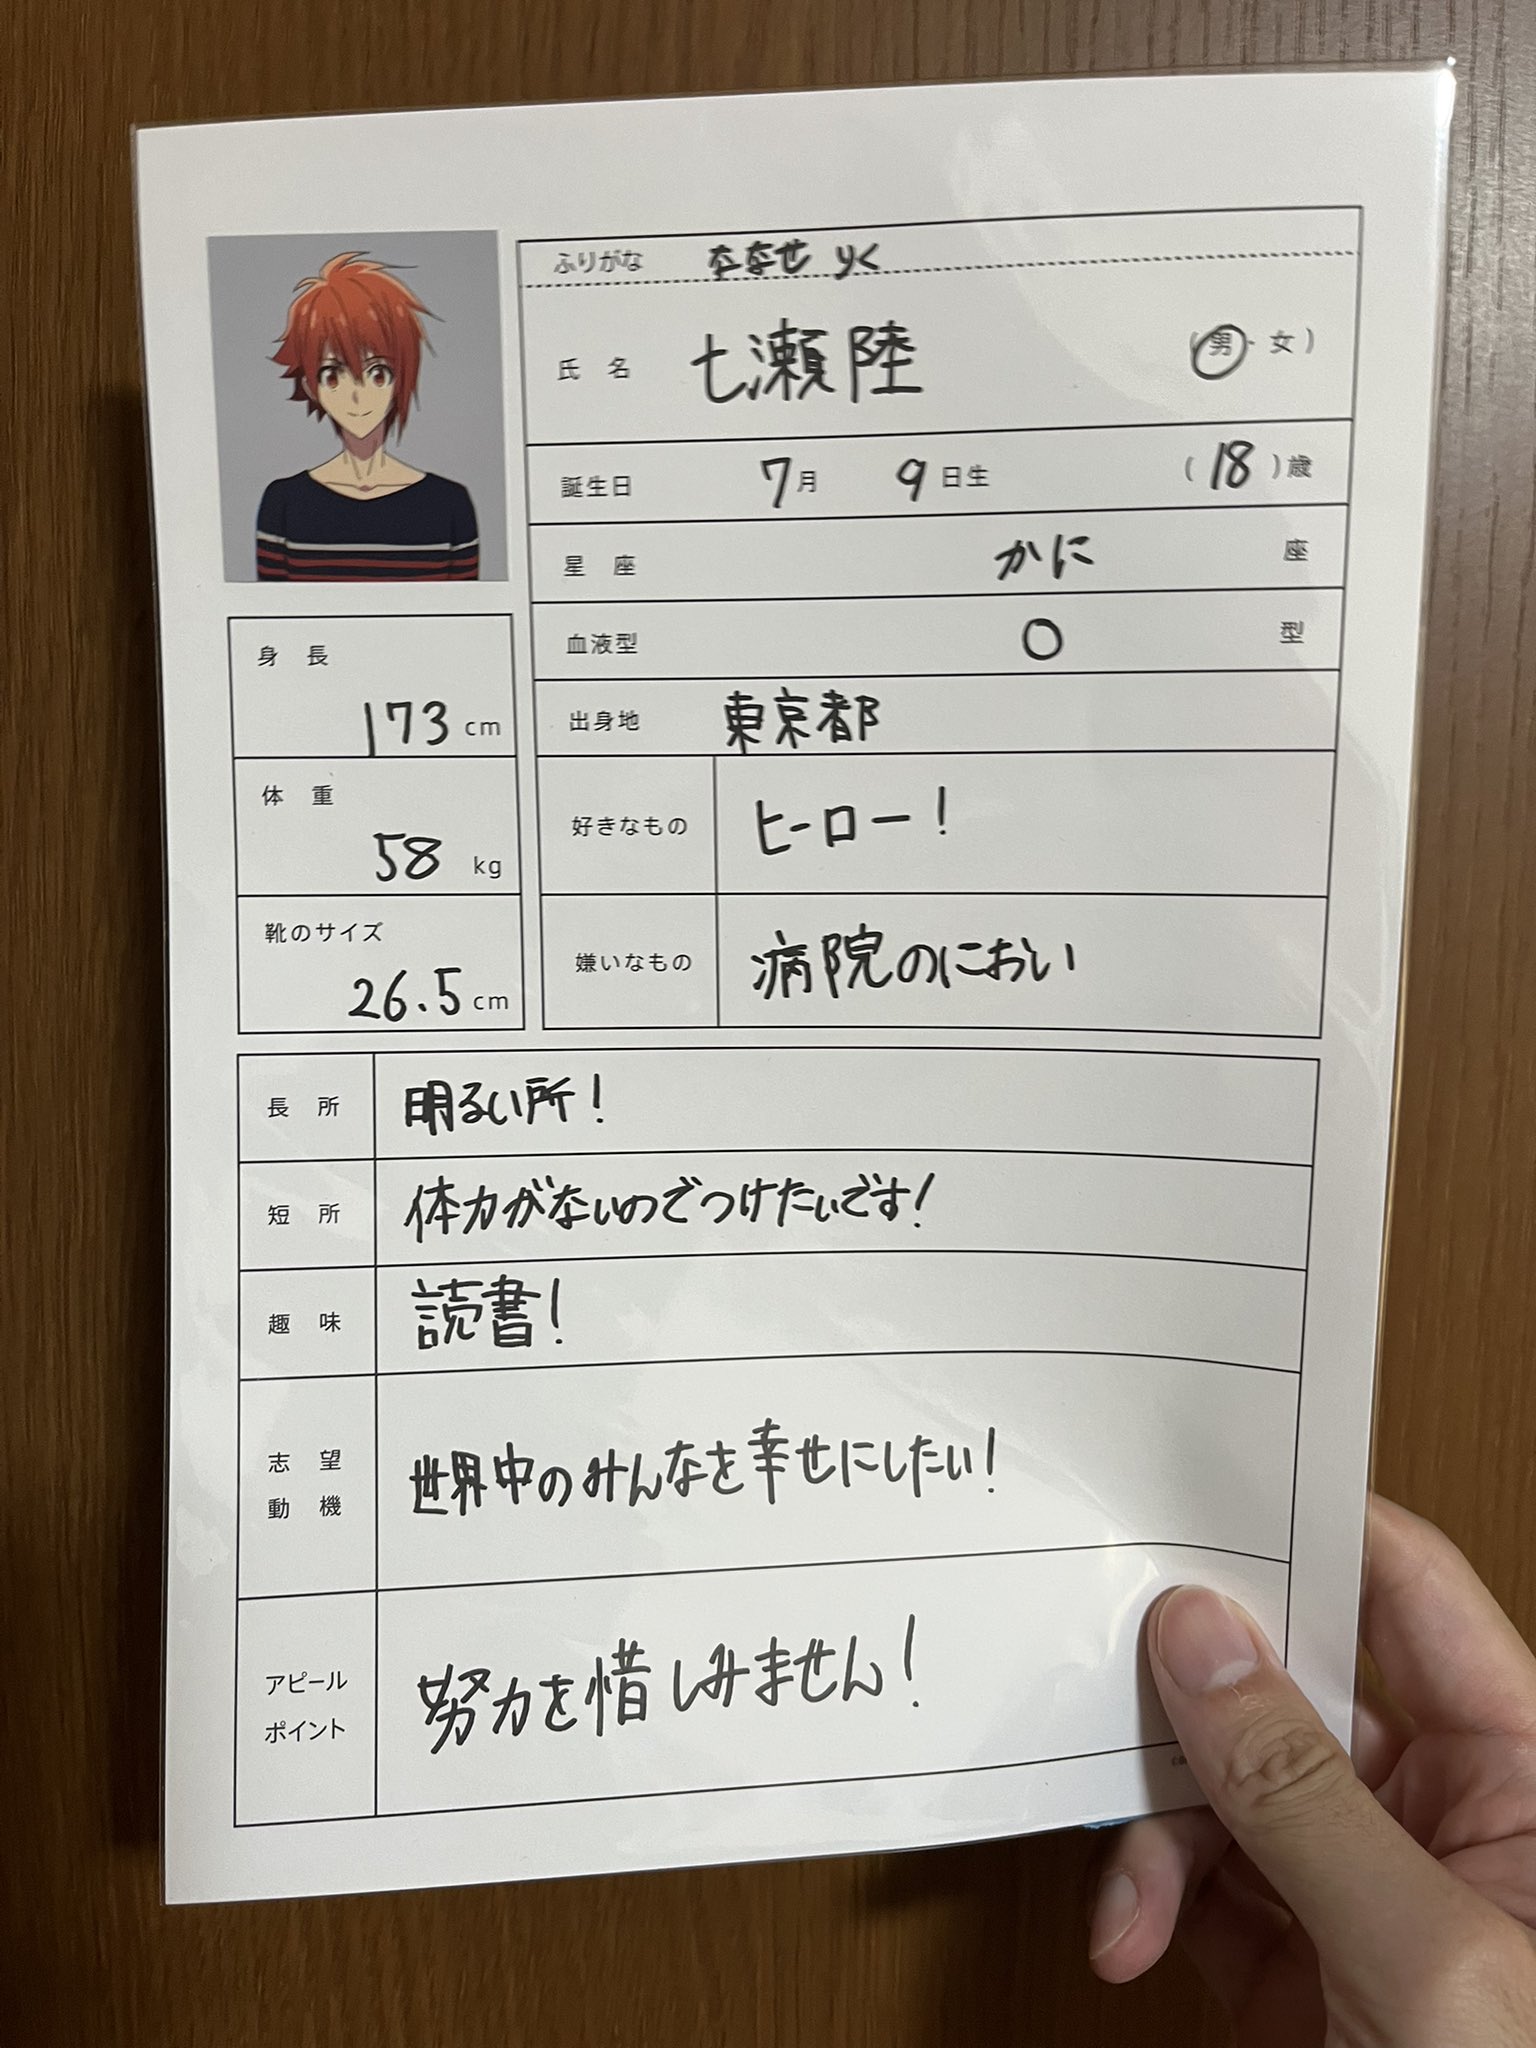 ふりがな ななせ りく
氏名 七瀬陸 (男・女)
誕生日 7月 9日生 (18)歳
星座 かに 座
血液型 O 型
出身地 東京都
好きなもの ヒーロー!
嫌いなもの 病院のにおい
身長
173cm
体重
58 kg
靴のサイズ
26.5cm
長所 明るい所!
短所 体力がないのでつけたいです!
趣味 読書!
志望
動機
世界中のみんなを幸せにしたい!
アピール
ポイント
努力を惜しみません!